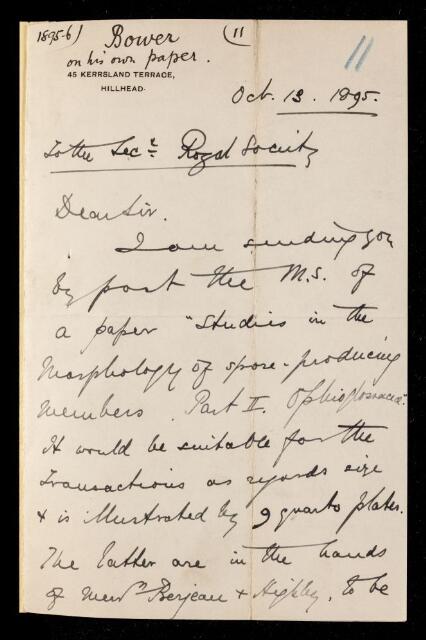 1895-6) Bower (11
on his own paper.
11
45 KERRSLAND TERRACE,
HILLHEAD.
Oct. 13. 1895.
To the Secʸ Royal Society
Dear Sir.
I am sending you
by post the M.S. of
a paper "Studies in the
Morphology of spore-producing
members. Part II. Ophioglossaceæ".
It would be suitable for the
Transactions as regards size
& is illustrated by 9 quarto plates.
The latter are in the hands
of Messʳˢ Berjeau & Highley, to be